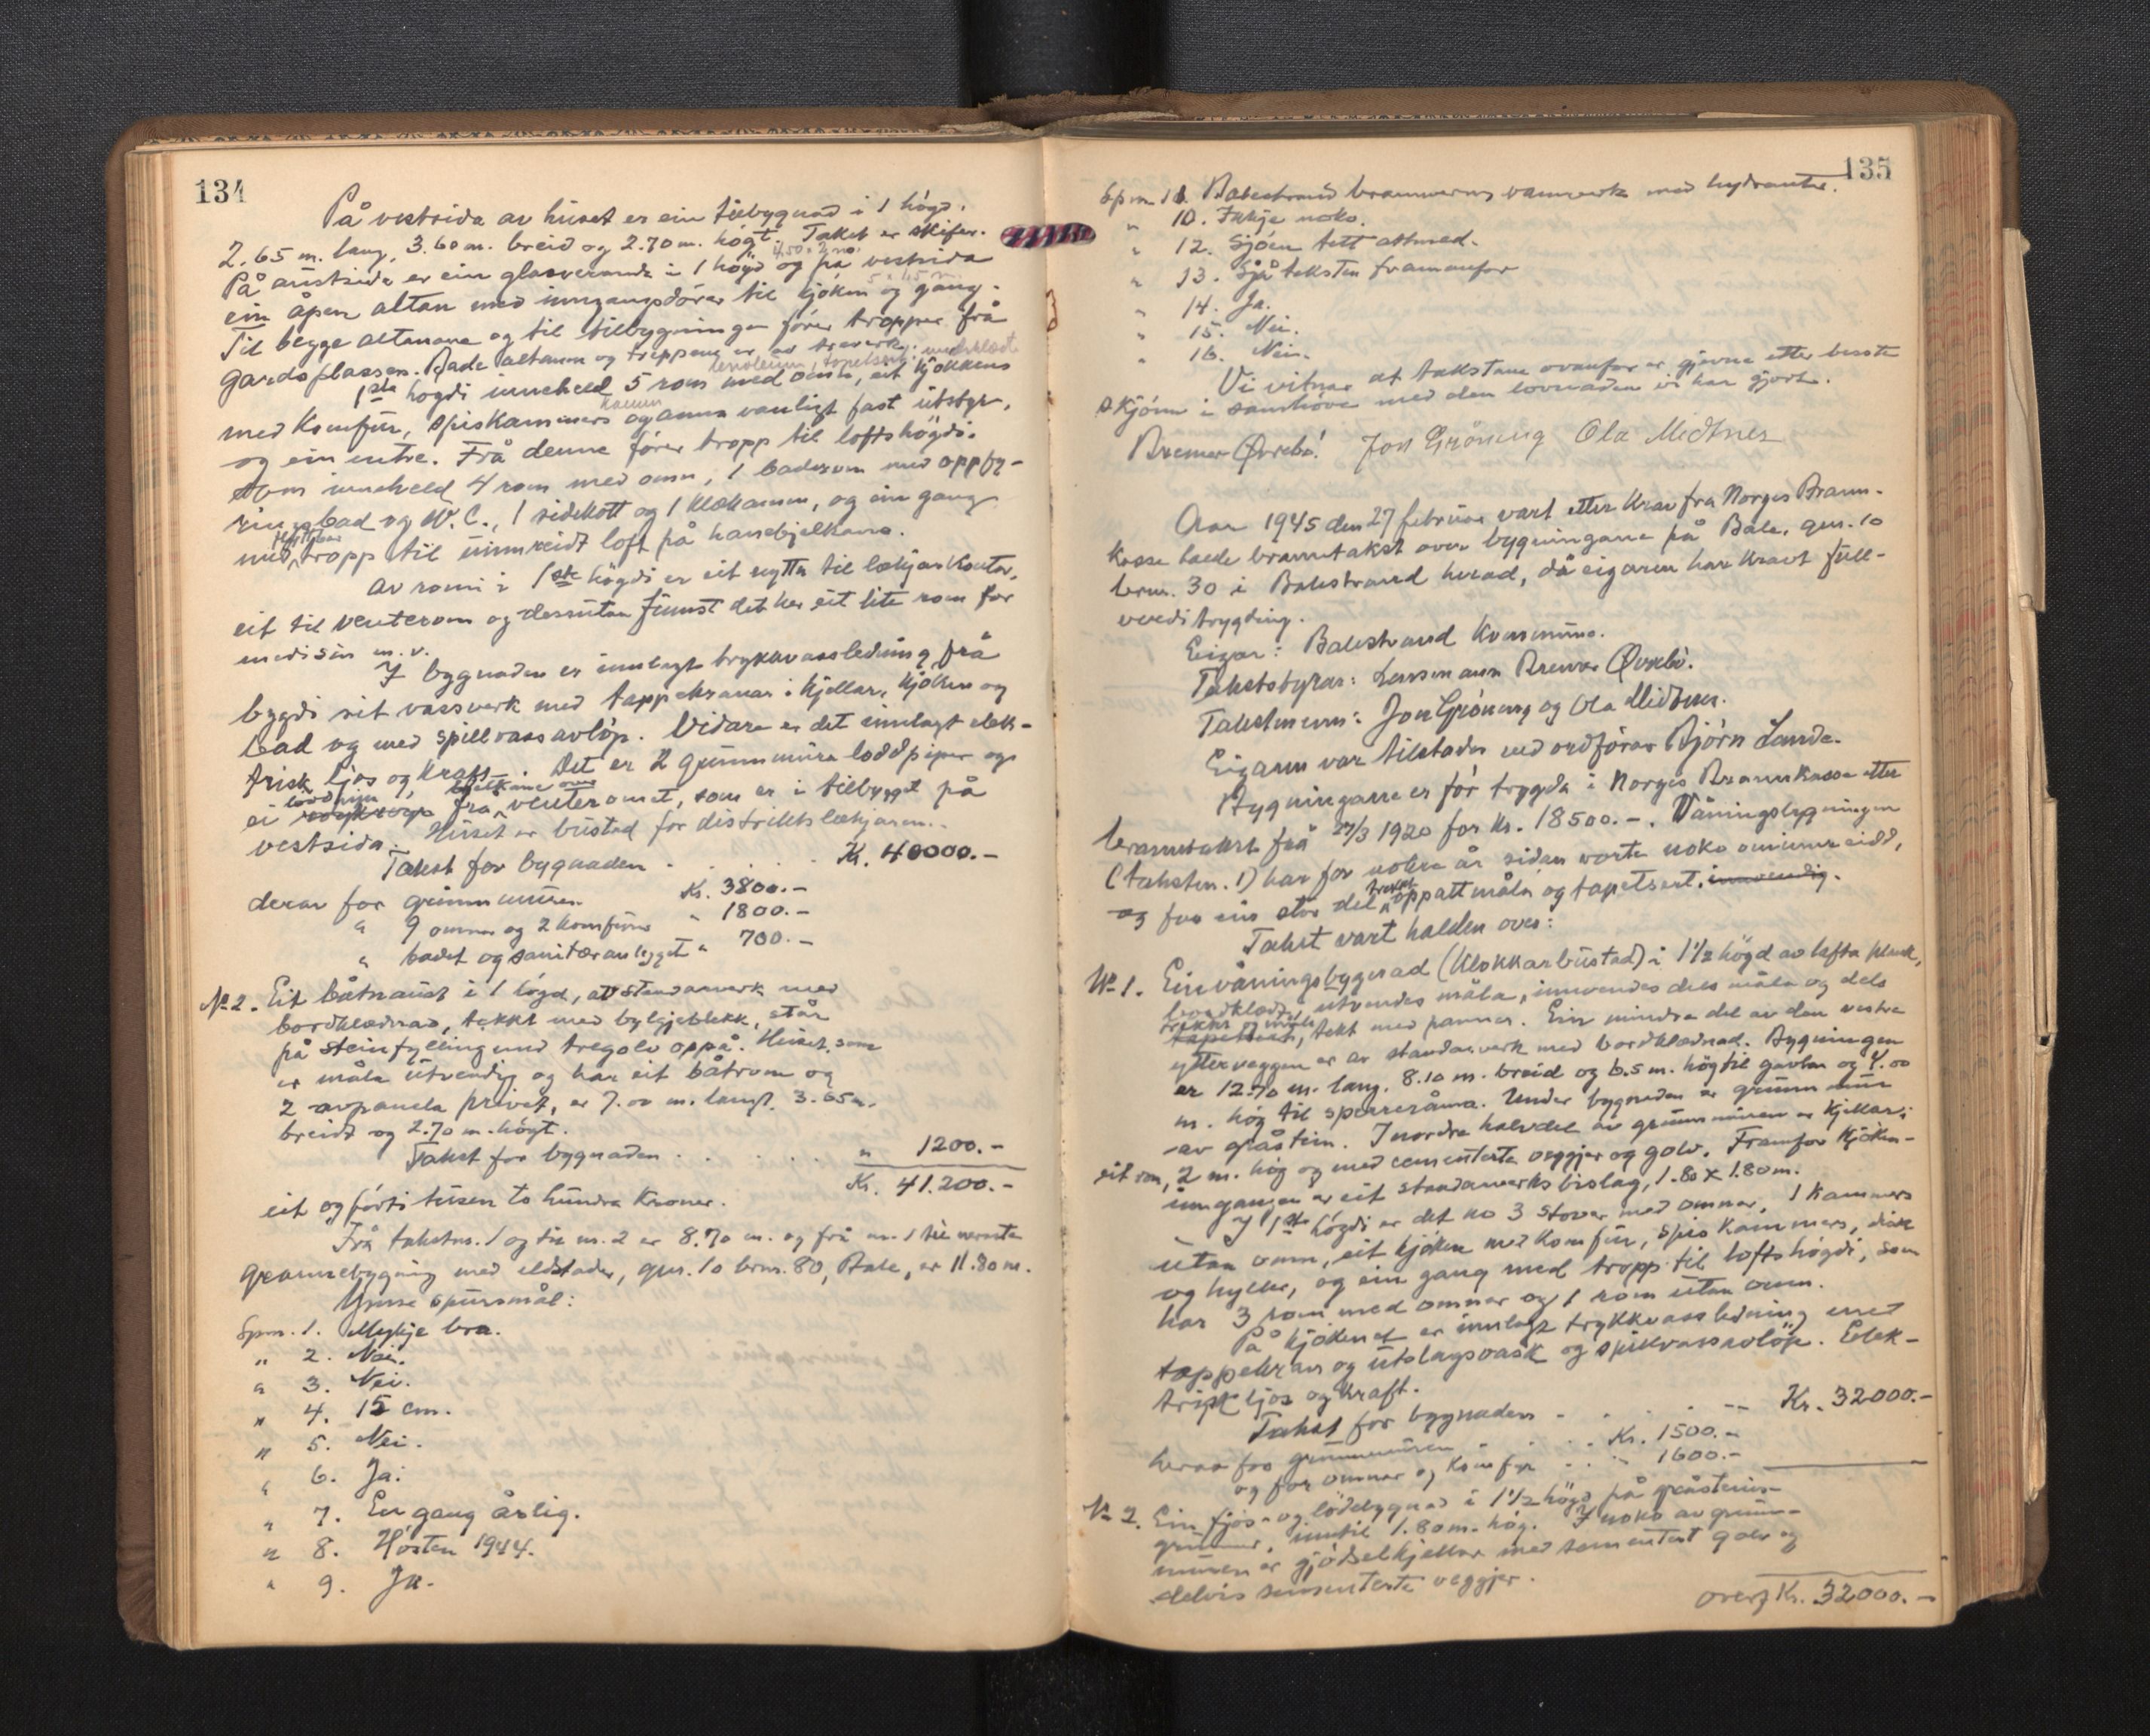 134
På vestsida av huset er ein tilbygnad i 1 högd.
2.65 m. lang, 3.60 m. breid og 2.70 m. högt. Taket er skifer.
4.50 x 2 m.
På austsida er ein glasveranda i 1 högd og på vestsida
ein åpen altan med inngangsdörer til kjöken og gang.
Til begge altanane og til tilbygningen förer tropper frå
gardsplassen. Både altanen og troppene er av treverk.
lenoleum, tapetsert
1ste högdi inneheld 5 rom med omn, eit kjökken
med komfur, spiskammers og anna vanligt fast utstyr,
og ein entre. Frå denne förer tropp til loftshögdi.
som inneheld 4 rom med omn, 1 baderom med oppfy-
ringsbad og W.C., 1 sidekott og 1 klækammer, og ein gang
med tropp til uinnreidt loft på hanebjelkane.
Av romi i 1ste högdi er eit nytta til lækjarkontor,
eit til venterom og dessutan finnst det her eit lite rom for
medisin m.v.
I bygnaden er innlagt trykkvassledning frå
bygdi sit vassverk med tappekranar i kjellar, kjöken og
bad og med spillvassavlöp. Vidare er det innlagt elek-
trisk ljos og kraft. Det er 2 grunnmura loddpiper og
ei loddpipe frå bjelkane over venteromet, som er i tilbygget på
vestsida. Huset er bustad for distriktslækjaren.
Takst for bygnaden . . . . . Kr. 40000.-
derav for grunnmuren Kr. 3800.-
" 9 omnar og 2 komfurar " 1800.-
" badet og sanitæranlegget " 700.-
No 2. Eit båtnaust i 1 högd, av standarverk med
bordklædnad, tekkt med bylgjeblekk, står
på steinfylling med tregolv oppå. Huset, som
er måla utvendig og har eit båtrom og
2 avpanela privet, er 7.00 m. langt, 3.65 m.
breidt og 2.70 m. högt.
Takst for bygnaden . . . . . " 1200.-
Kr. 41.200.-
eit og förti tusen to hundra kroner.
Frå takstnr. 1 og til nr. 2 er 8.70 m. og frå nr. 1 til næraste
grannebygning med eldstader, gnr. 10 brnr. 80, Bale, er 11.80 m.
Ymse spursmål:
Spm. 1. Mykje bra.
" 2. Nei.
" 3. Nei.
" 4. 15 cm.
" 5. Nei.
" 6. Ja.
" 7. En gang årlig.
" 8. Hösten 1944.
" 9. Ja.
135
Spm. 11. Balestrand brannverns vannverk med hydranter.
" 10. Ikkje noko.
" 12. Sjöen tett attmed.
" 13. Sjå taksten framanfor
" 14. Ja.
" 15. Nei.
" 16. Nei.
Vi vitnar at takstane ovanfor er gjevne etter beste
skjönn i samhöve med den lovnaden vi har gjort.
Bremer Øvrebö. Jon Gröneng Ola Midtnes
Aar 1945 den 27 februar vart etter krav fra Norges Brann-
kasse halde branntakst over bygningane på Bale, gnr. 10
brnr. 30 i Balestrand herad, då eigaren har kravt full-
verditrygding.
Eigar: Balestrand Kommune.
Takststyrar: Lensmann Bremer Øvrebö.
Takstmenn: Jon Gröneng og Ola Midtnes.
Eigaren var tilstades ved ordförar Björn Lande.
Bygningane er för trygda i Norges Brannkasse etter
branntakst frå 27/3 1920 for kr. 18500.-. Våningsbygningen
(takstnr. 1) har for nokre år sidan vorte noko ominnreidd,
og for ein stor del trekt oppatt måla og tapetsert. innvendig.
Takst vart halden over:
No 1. Ein våningsbygnad (klokkarbustad) i 1 1/2 högd av lafta plank,
bordklædd, utvendes måla, innvendes dels måla og dels
trekkt og måla
tapetsert, tekt med pannar. Ein mindre del av den vestre
ytterveggen er av standarverk med bordklædnad. Bygningen
er 12.70 m. lang. 8.10 m. breid og 6.5 m. hög til gavlen og 4.00
m. hög til sperreråma. Under bygnaden er grunnmur
av gråstein. I nordre halvdel av grunnmuren er kjellar,
eit rom, 2 m. hög og med cementerte veggjer og golv. Framfor kjöken-
inngangen er eit standarverks bislag, 1.80 x 1.80 m.
I 1ste högdi er det no 3 stover med omnar, 1 kammers
utan omn, eit kjöken med komfur, spiskammers, disk
og hyller, og ein gang med tropp til loftshögdi, som
har 3 rom med omnar og 1 rom utan omn.
På kjökenet er innlagt trykkvassledning med
tappekran og utslagsvask og spillvassavlöp. Elek-
trisk ljos og kraft.
Takst for bygnaden . . . . . Kr. 32000.-
herav for grunnmuren . . . . Kr. 1500.-
og for omnar og komfyr . . . " 1600.-
No 2. Ein fjös- og lödebygnad i 1 1/2 högd på gråsteins-
grunnmur, inntil 1.80 m. hög. I noko av grunn-
muren er gjödselkjellar med sementert golv og
delvis sementerte veggjer.
overf Kr. 32000.-